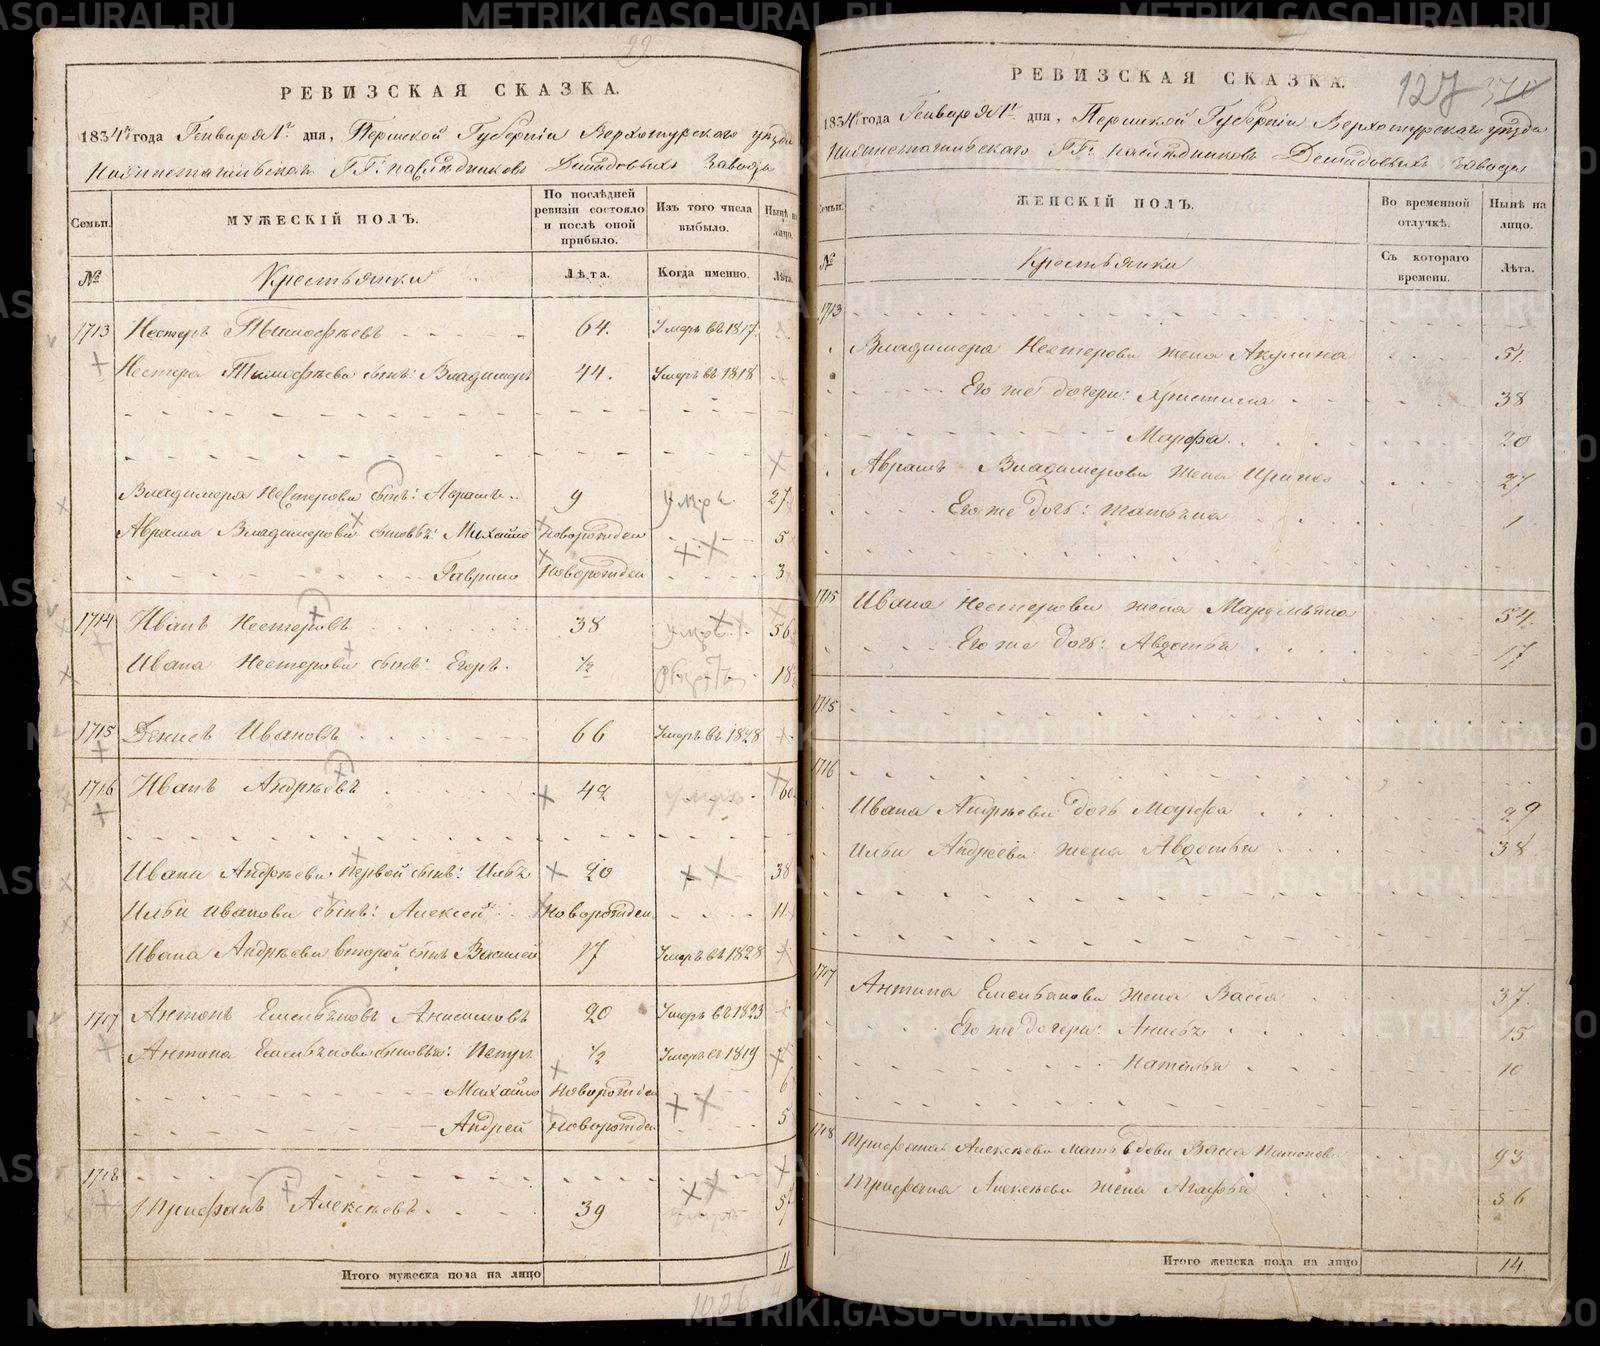 РЕВИЗСКАЯ СКАЗКА.
1834 года Генваря 1 дня, Пермской Губерніи Верхотурского уѣзда
Нижнетагильскаго ГГ: наслѣдниковъ Демидовыхъ завода
Семьи. МУЖЕСКІЙ ПОЛЪ. По послѣдней ревизіи состояло и послѣ оной прибыло. Изъ того числа выбыло. Нынѣ на лицо.
№ Крестьянки Лѣта. Когда именно. Лѣта.
1713 Нестеръ Тимофѣевъ 64. Умеръ въ 1817.
Нестера Тимофѣева сынъ: Владимеръ 44. Умеръ въ 1818
Владимера Нестерова сынъ: Аврамъ 9 умре. 27
Аврама Владимерова сыновья: Михайло Новорожден 5
Гаврило Новорожден 3
1714 Иванъ Нестеровъ 38 умре. 56
Ивана Нестерова сынъ: Егоръ. ½ 18½
1715 Денисъ Ивановъ 66 Умеръ въ 1828
1716 Иванъ Андрѣевъ 42 умре. 60
Ивана Андрѣева первой сынъ: Илья 20 38
Ильи Иванова сынъ: Алексей Новорожден 11
Ивана Андрѣева второй сынъ Василей 17 Умеръ въ 1828
1717 Антонъ Емельяновъ Анисимовъ 20 Умеръ въ 1823
Антипа Емельянова сыновья: Петръ ½ Умеръ въ 1819
Михайло Новорожден 6
Андрей Новорожден 5
1718
Трифанъ Алексѣевъ. 39 57
Итого мужеска пола на лицо 11
РЕВИЗСКАЯ СКАЗКА.
127
1834 года Генваря 1 дня, Пермской Губерніи Верхотурскаго уѣзда
Нижнетагильскаго ГГ: наслѣдниковъ Демидовыхъ завода
Семьи. ЖЕНСКІЙ ПОЛЪ. Во временной отлучкѣ. Нынѣ на лицо.
№ Крестьянки Съ котораго времени. Лѣта.
1713
Владимера Нестерова жена Акулина 51.
Его же дочери: Христина 38
Марфа. 20
Аврама Владимерова жена Ирина 27
Его же дочь: Татьяна 1
1715 Ивана Нестерова жена Маремьяна 54.
Его же дочь: Авдотья 17
1715
1716
Ивана Андрѣева дочь Марфа 29
Ильи Андрѣева жена Авдотья 38
1717
Антипа Емельянова жена Васса 37.
Его же дочери: Анисья 15
Наталья 10
1718
Трифана Алексѣева мать вдова Васса 93
Трифана Алексѣева жена Агафья 56
Итого женска пола на лицо 14